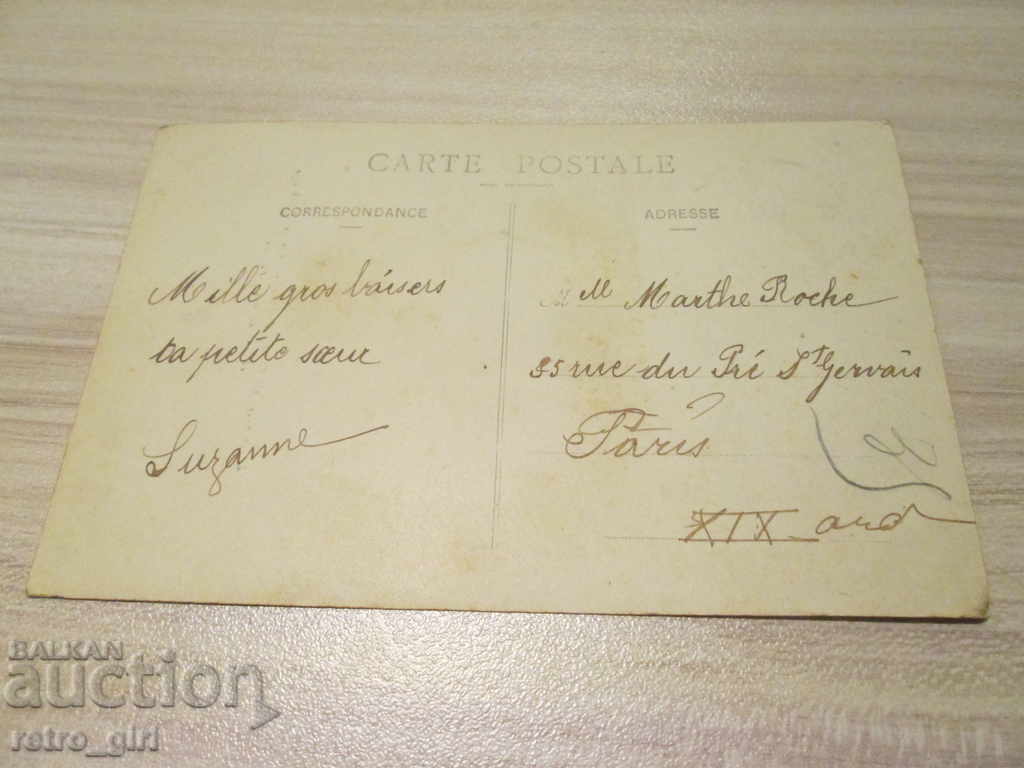 CARTE POSTALE
CORRESPONDANCE
Mille gros baisers
ta petite sœur
Suzanne
ADRESSE
Mlle Marthe Roche
35 rue du Pré St Gervais
Paris
XIX ard
BALKAN
auction
retro_girl